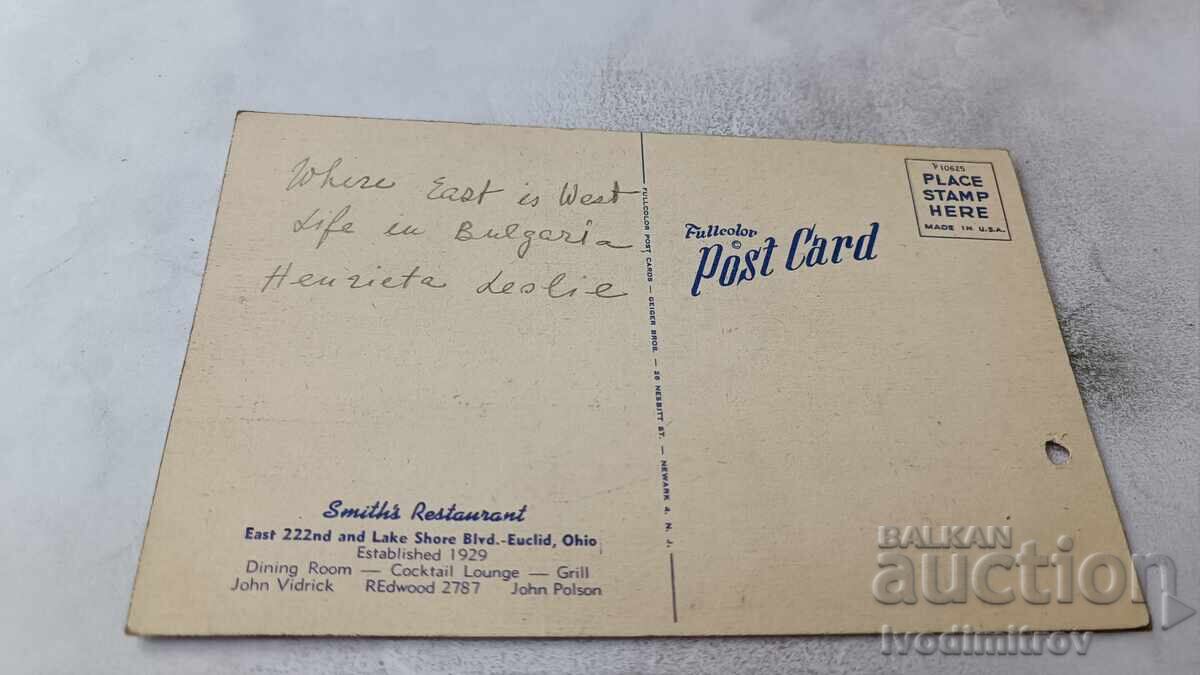 Where East is West
Life in Bulgaria
Henrieta Leslie
Smith's Restaurant
East 222nd and Lake Shore Blvd.-Euclid, Ohio
Established 1929
Dining Room — Cocktail Lounge — Grill
John Vidrick REdwood 2787 John Polson
FULLCOLOR POST CARDS — GEIGER BROS. — 26 NESBITT ST. — NEWARK 4, N. J.
Fullcolor
©
Post Card
10625
PLACE
STAMP
HERE
MADE IN U.S.A.
BALKAN
auction
Ivodimitrov